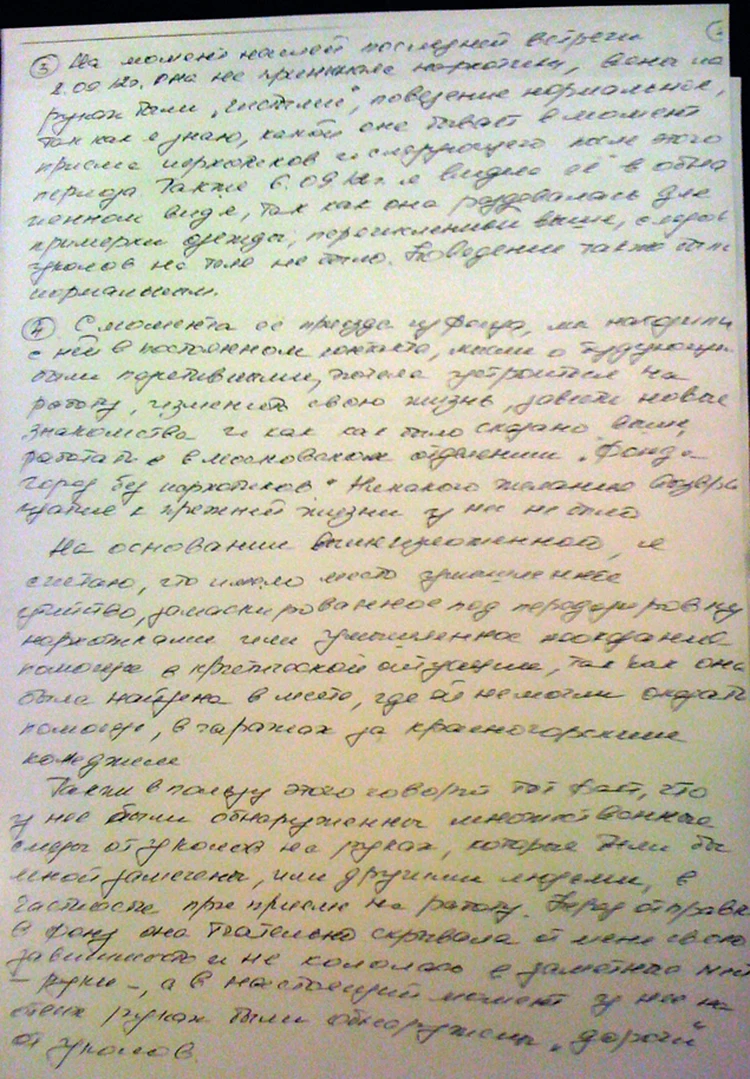 ③ На момент нашей последней встречи
2.09.12г. она не принимала наркотики, вены на
руках были "чистыми", поведение нормальное,
так как я знаю, какой она бывает в момент
приема наркотиков и следующего после этого
периода. Также 6.09.12г. я видела её в обна
женном виде, так как она раздевалась для
примерки одежды, перечисленной выше, следов
уколов на теле не было. Поведение также было
нормальным.
④ С момента её приезда из фонда, мы находились
с ней в постоянном контакте, мысли о будующем
были позитивными, хотела устроиться на
работу, изменить свою жизнь, завести новые
знакомства и как было сказано выше,
работать в московском отделении "Фонда
город без наркотиков" Никакого желания возвра
щаться к прежней жизни у нее не было
На основании вышеизложенного, я
считаю, что имело место умышленное
убийство, замаскированное под передозировку
наркотиками или умышленное неоказание
помощи в критической ситуации, так как она
была найдена в месте, где ей не могли оказать
помощь, в гаражах за красногорским
колледжем
Также в пользу этого говорит тот факт, что
у нее были обнаруженны множественные
следы от уколов на руках, которые были бы
мной замечены, или другими людьми, в
частности при приеме на работу. Перед отправкой
в фонд она тщательно скрывала от меня свою
зависимость и не кололась в заметные места
- руки -, а в настоящий момент у нее на
обеих руках были обнаружены "дороги"
от уколов.